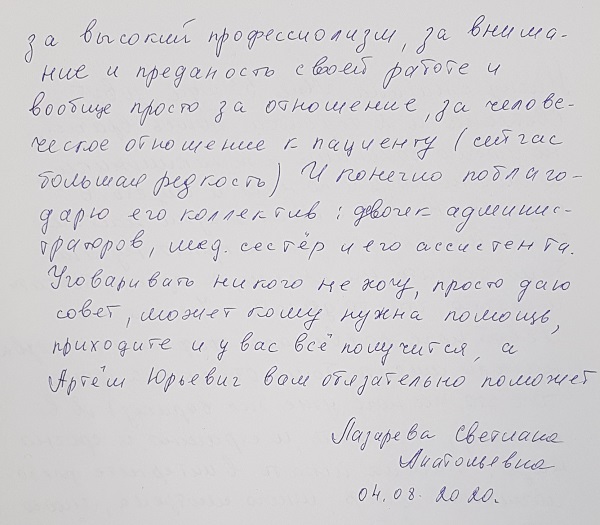 за высокий профессиолизм, за внима-
ние и преданость своей работе и
вообще просто за отношение, за челове-
ческое отношение к пациенту (сейчас
большая редкость) И конечно поблаго-
дарю его коллектив: девочек админис-
траторов, мед. сестёр и его ассистента.
Уговаривать никого не хочу, просто даю
совет, может кому нужна помощь,
приходите и у вас всё получится, а
Артём Юрьевич вам обязательно поможет
Лазарева Светлана
Анатольевна
04.08.2020.